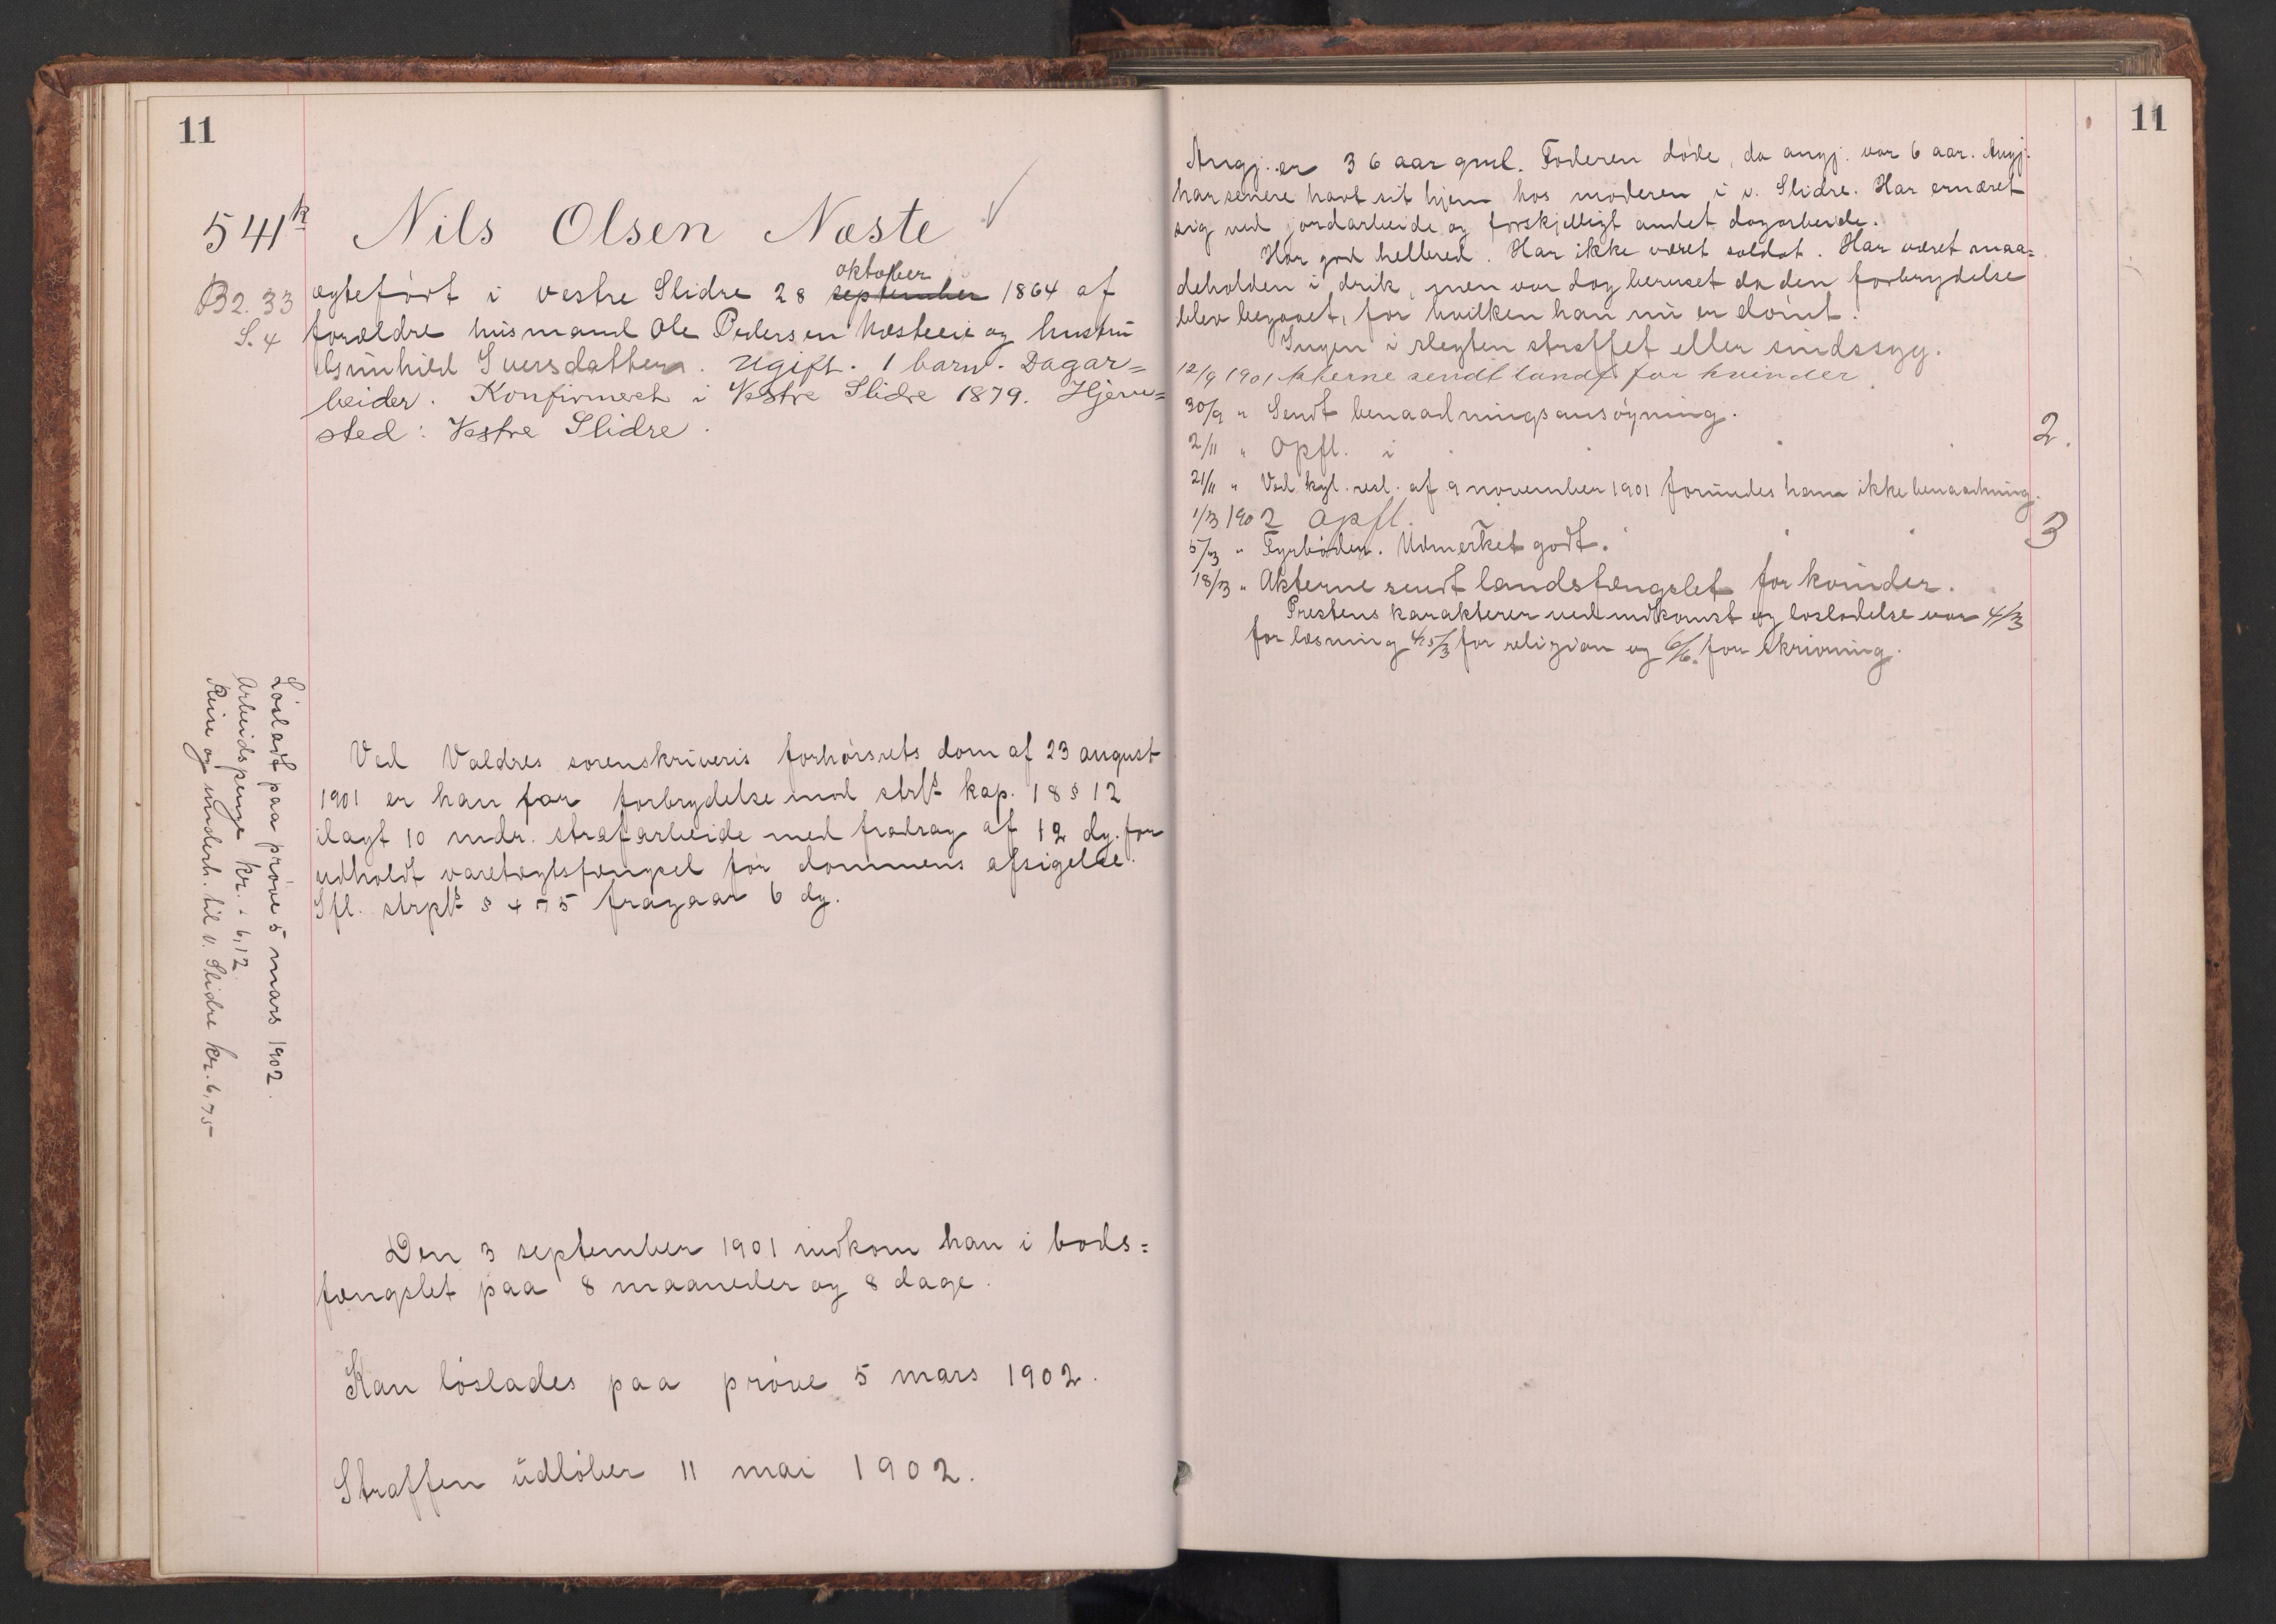 11
541k Nils Olsen Næste
oktober
B2. 33 ægtefødt i vestre Slidre 28 september 1864 af
S. 4 forældre husmand Ole Pedersen Næsteeie og hustru
Gunhild Iversdatter. Ugift. 1 barn. Dagar=
beider. Konfirmeret i Vestre Slidre 1879. Hjem=
sted: Vestre Slidre.
Ved Valdres sorenskriveris forhørsrets dom af 23 august
1901 er han for forbrydelse mod strfl. kap. 18 § 12
ilagt 10 mdr. strafarbeide med fradrag af 12 dg. for
udholdt varetægtsfængsel før dommens afsigelse.
Ifl. strpl. § 475 fragaar 6 dg.
Den 3 september 1901 indkom han i bods=
fængslet paa 8 maaneder og 8 dage.
Kan løslades paa prøve 5 mars 1902.
Straffen udløber 11 mai 1902.
Løsladt paa prøve 5 mars 1902.
Arbeidspenge kr. 6,12.
Reise og underh. til v. Slidre kr. 6,75
11
Angj. er 36 aar gml. Faderen døde, da angj. var 6 aar. Angj.
har senere havt sit hjem hos moderen i v. Slidre. Har ernæret
sig ved jordarbeide og forskjelligt andet dagarbeide.
Har god helbred. Har ikke været soldat. Har været maa=
deholden i drik, men var dog beruset da den forbrydelse
blev begaaet, for hvilken han nu er dømt.
Ingen i slegten straffet eller sindssyg.
12/9 1901 Akterne sendt landsf. for kvinder
30/9 " Sendt benaadningsansøgning.
2/11 " Opfl. i 2.
21/11 " Ved kgl. resl. af 9 november 1901 forundes ham ikke benaadning.
1/3 1902 Opfl. 3
5/3 " Fyrbøder. Udmerket godt.
18/3 " Akterne sendt landsfængslet for kvinder.
Prestens karakterer ved indkomst og løsladelse var 4/3
for læsning 4,5/3 for religion og 6/6 for skrivning.